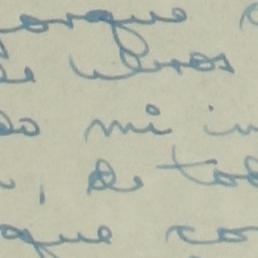 porque
de libros
do mi in
, de tod
que co